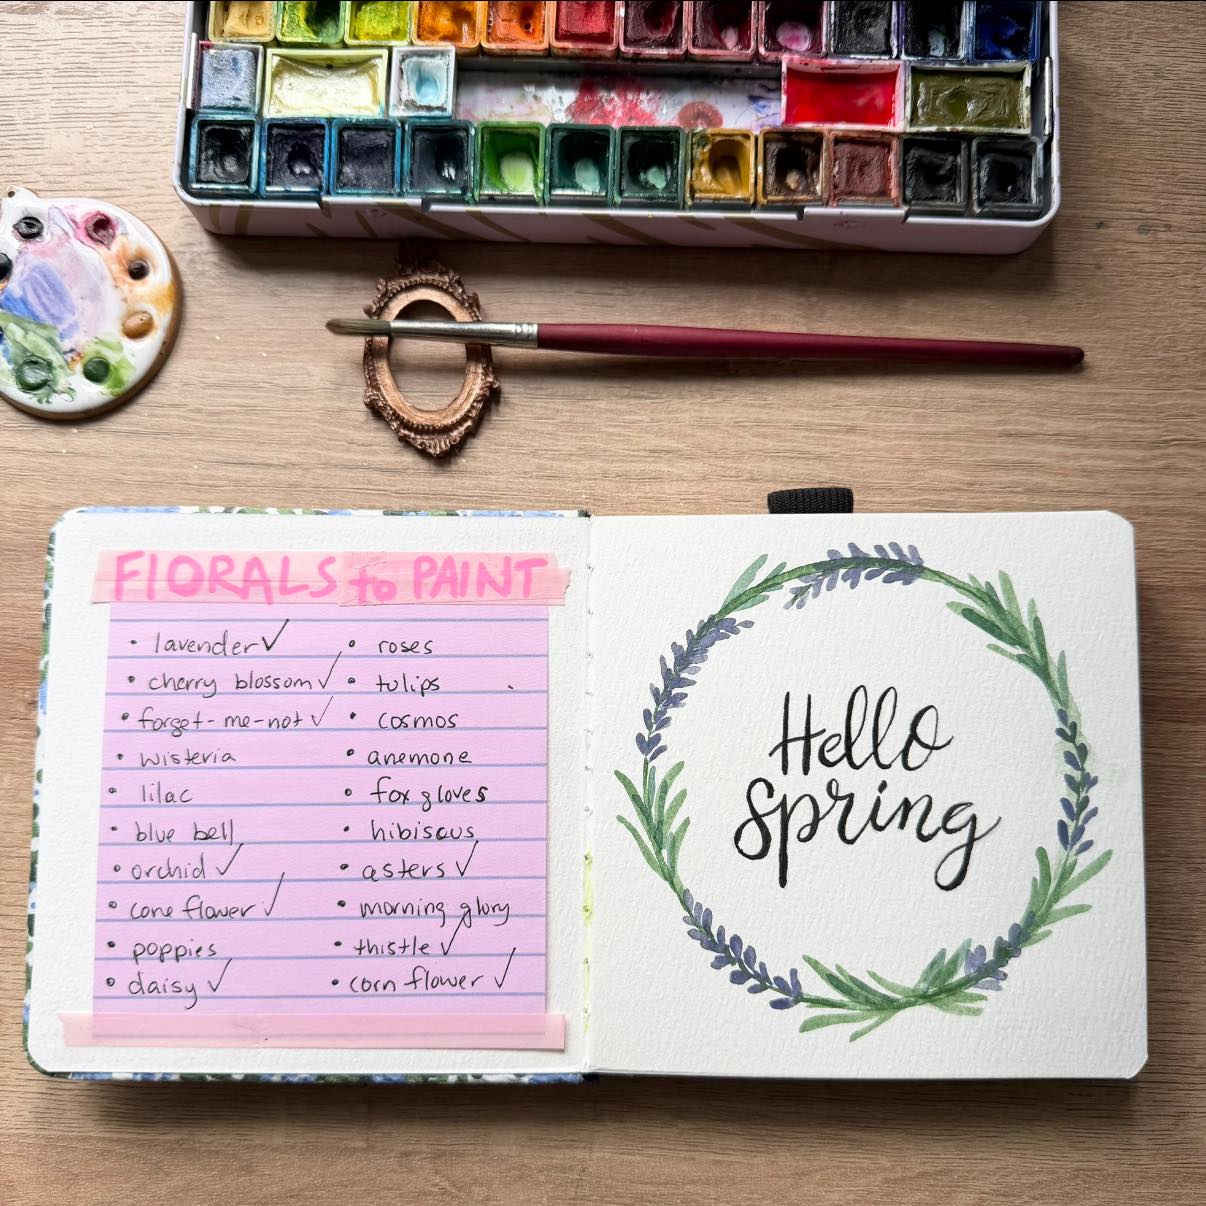 FlORALS to PAINT
• lavender ✓
• cherry blossom ✓
• forget-me-not ✓
• wisteria
• lilac
• blue bell
• orchid ✓
• cone flower ✓
• poppies
• daisy ✓
• roses
• tulips
• cosmos
• anemone
• fox gloves
• hibiscus
• asters ✓
• morning glory
• thistle ✓
• corn flower ✓
Hello
spring